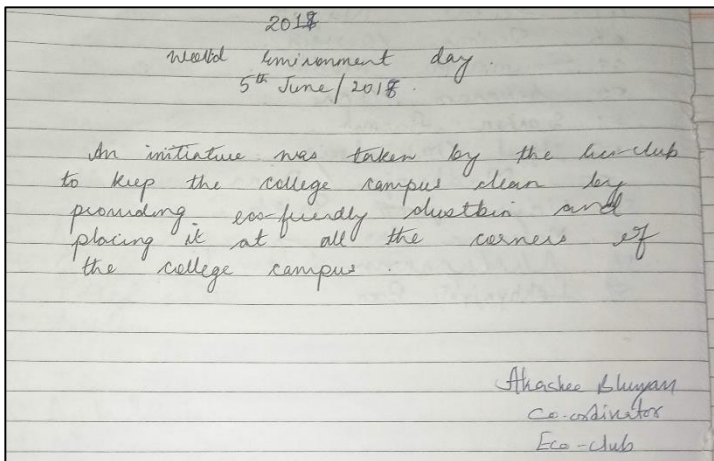 2018
World Environment day.
5th June/2018.
An initiative was taken by the Eco-club
to keep the college campus clean by
providing eo-friendly dustbin and
placing it at all the corners of
the college campus.
Bhuyan
Co-ordinator
Eco-club